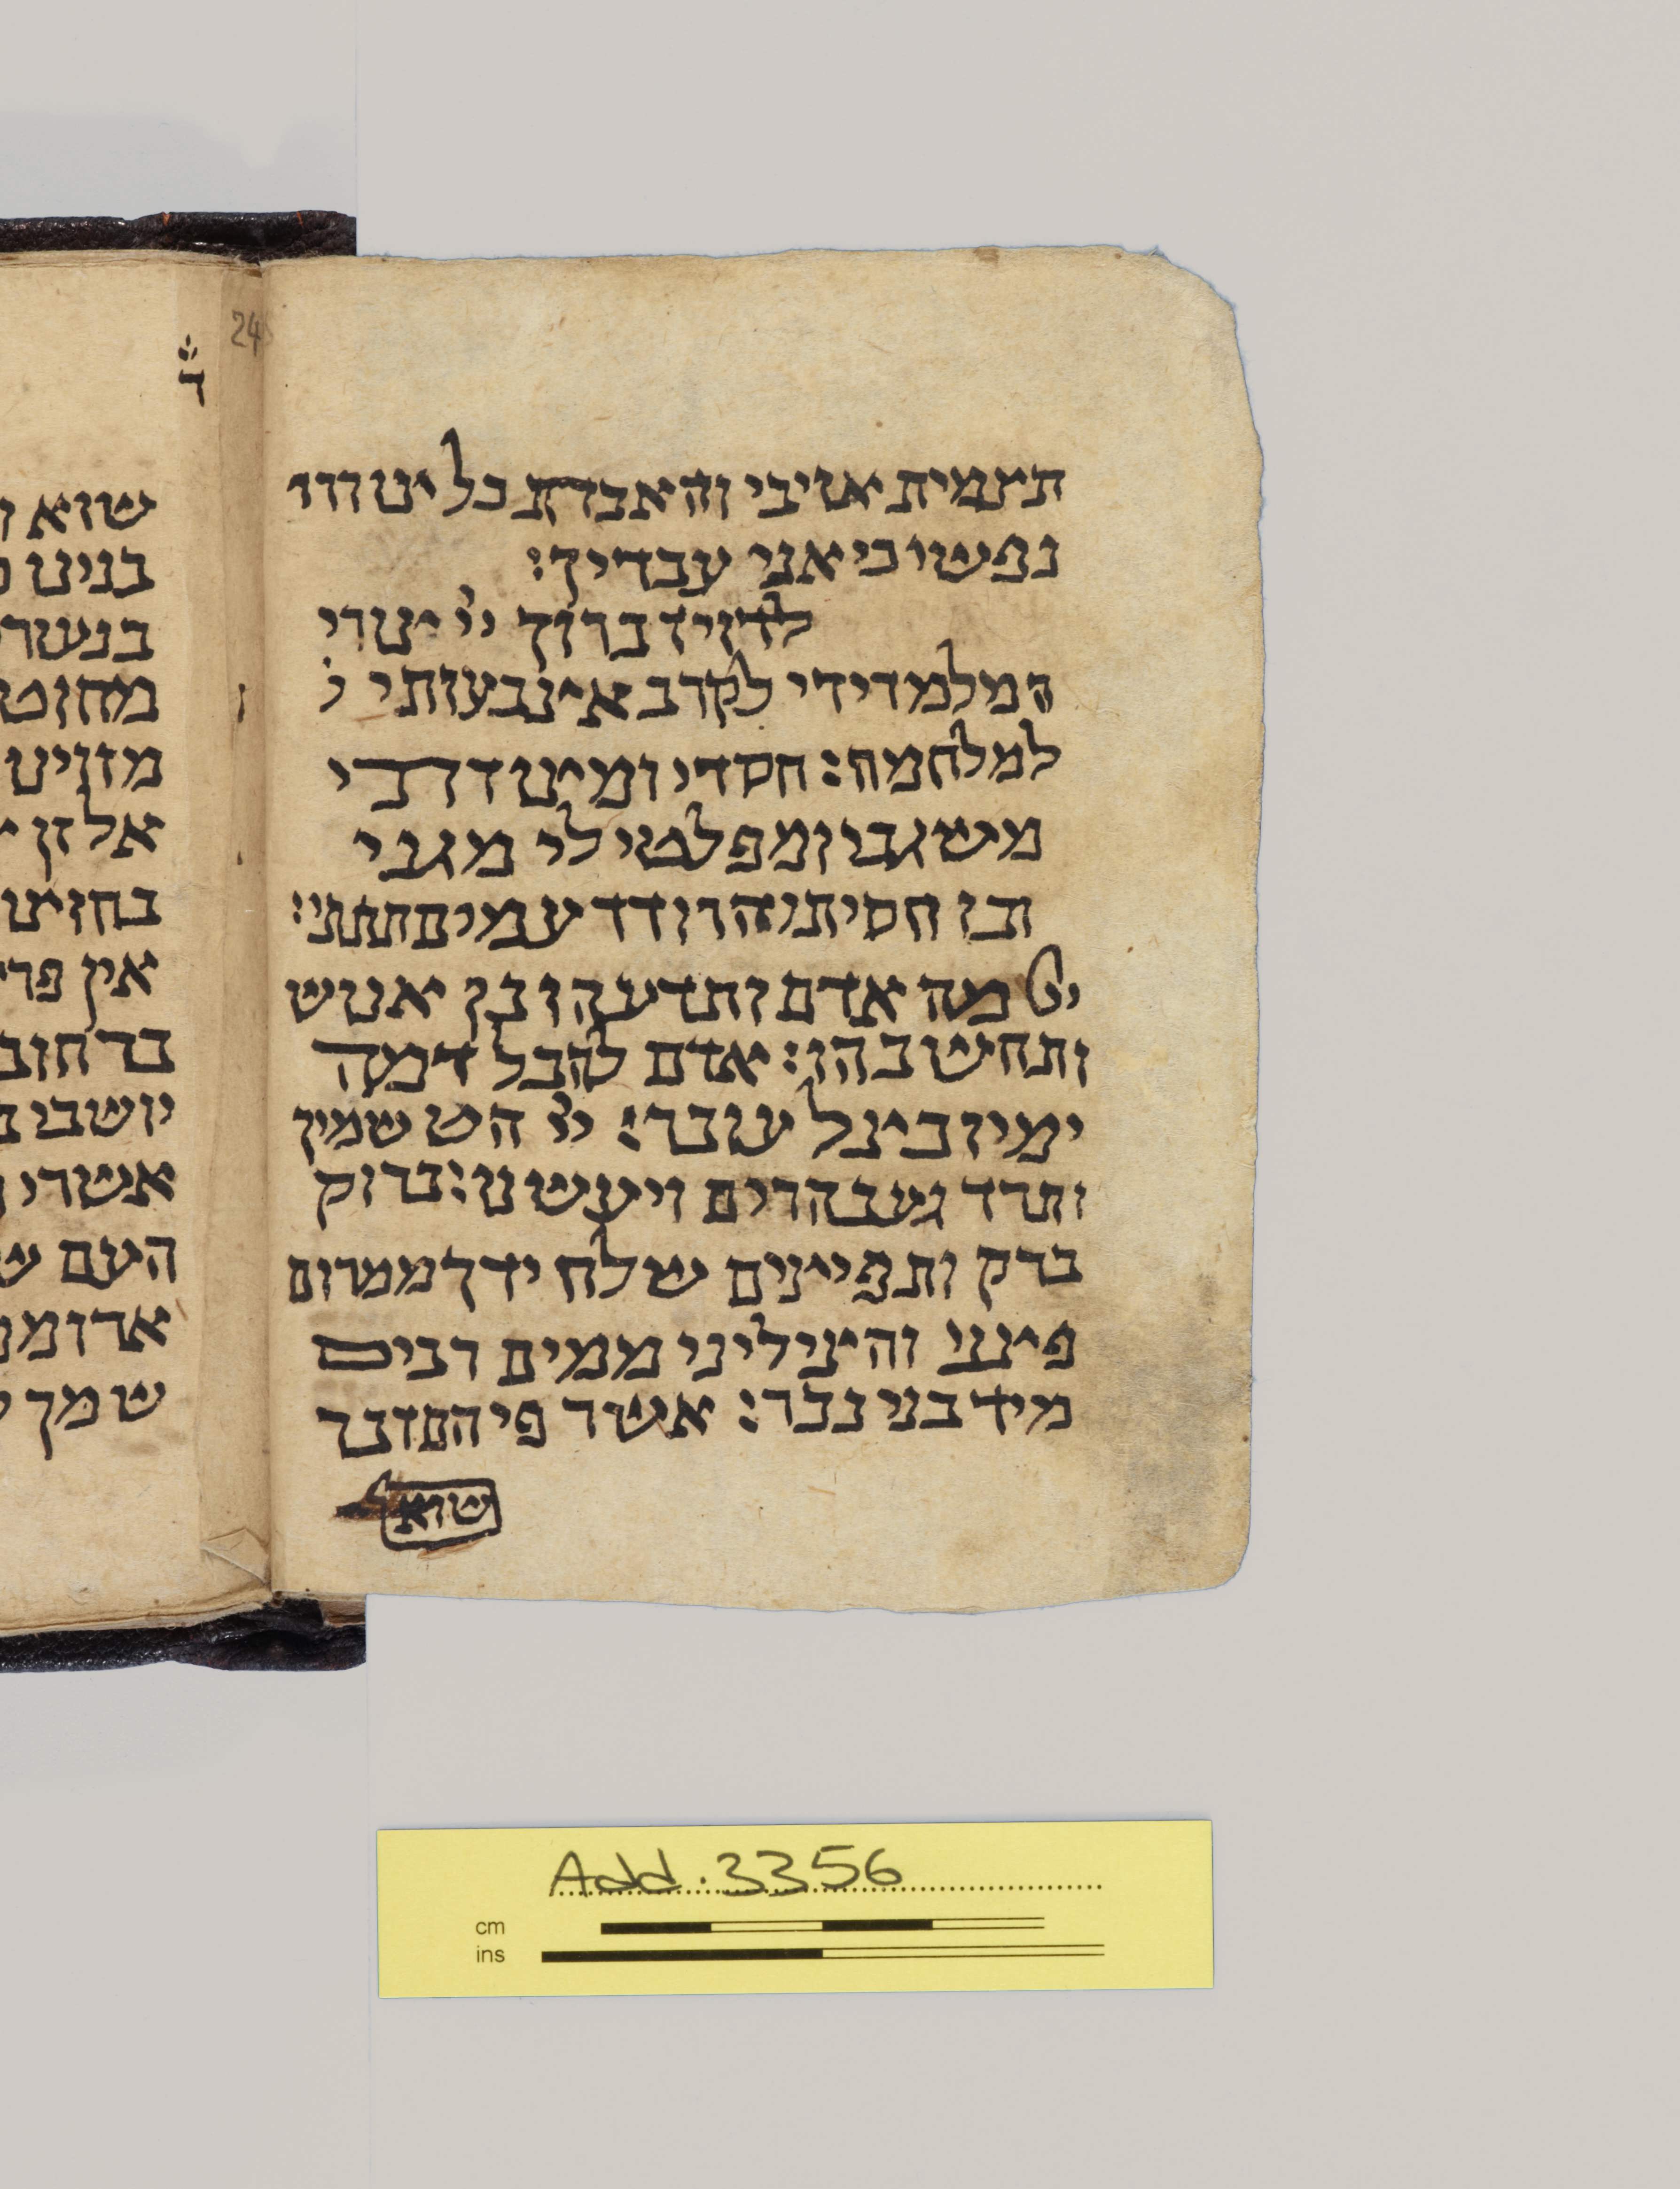 תצמית אויבי והאבדת כל צוררי
נפשי כי אני עבדיך׃
לדויד ברוך יי צורי
המלמד ידי לקרב אצבעותי
למלחמה׃ חסדי ומצודתי
משגבי ומפלטי לי מגני
ובו חסיתי הרודד עמי תחתי׃
יי מה אדם ותדעהו בן אנוש
ותחשבהו׃ אדם להבל דמה
ימיו כצל עובר׃ יי הט שמיך
ותרד גע בהרים ויעשנו׃ ברוק
ברק ותפיצים שלח ידך ממרום
פצני והצילני ממים רבים
מיד בני נכר׃ אשר פיהם דבר
שוא
24
ד
שוא
בנינו
כנערי
מחוט
מזוינו
אל זן
בחוצו
אין פר
ברחוב
יושבי
אשרי
העם ש
ארוממ
שמך
Add. 3356
cm
ins